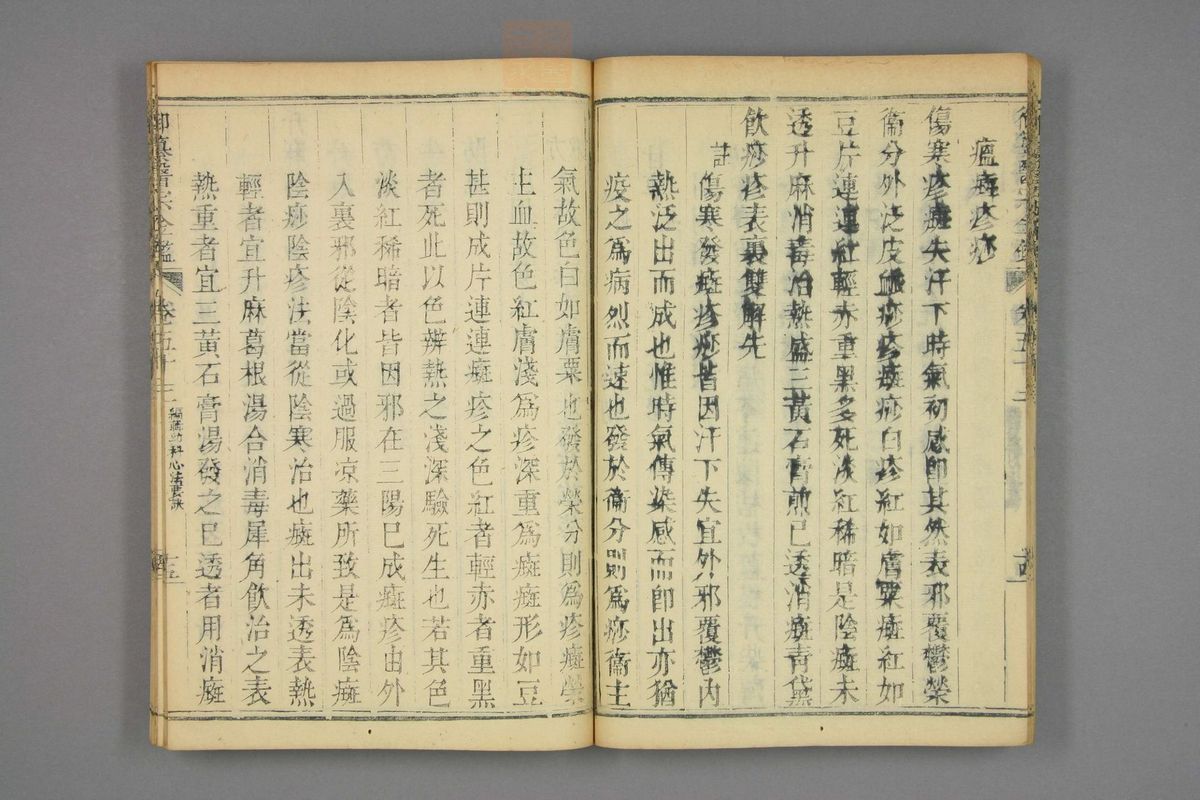 瘟㾦疹痧
傷寒疹㾦失汗下時氣初感卽其然表邪覆鬱榮
衞分外泛皮血痧疹㾦痧白疹紅如膚粟㾦紅如
豆片連連紅輕赤重黑多死淡紅稀暗是陰㾦未
透升麻消毒治熱盛三黃石膏煎已透消㾦靑黛
飮痧疹表裏雙解先
註
傷寒發㾦疹痧皆因汗下失宜外邪覆鬱內
熱泛出而成也惟時氣傳染感而卽出亦猶
疫之爲病烈而速也發於衞分則爲痧衞主
氣故色白如膚粟也發於榮分則爲疹㾦榮
主血故色紅膚淺爲疹深重爲㾦㾦形如豆
甚則成片連連㾦疹之色紅者輕赤者重黑
者死此以色辨熱之淺深驗死生也若其色
淡紅稀暗者皆因邪在三陽已成㾦疹由外
入裏邪從陰化或過服凉藥所致是爲陰㾦
陰痧陰疹法當從陰寒治也㾦出未透表熱
輕者宜升麻葛根湯合消毒犀角飮治之表
熱重者宜三黃石膏湯發之已透者用消㾦
御纂醫宗金鑑
卷五十三
編輯幼科心法要訣
十五